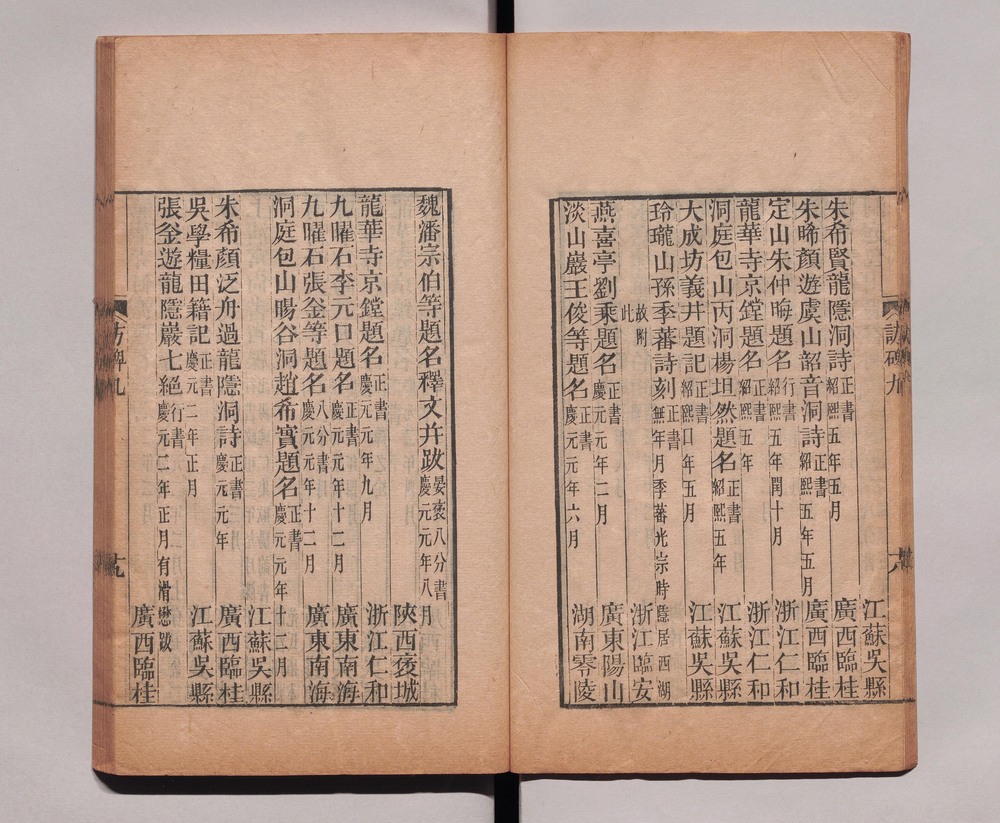 江蘇吳縣
朱希賢龍隱洞詩正書紹熙五年五月廣西臨桂
朱晞顏遊虞山韶音洞詩正書紹熙五年五月廣西臨桂
定山朱仲晦題名行書紹熙五年閏十月浙江仁和
龍華寺京鏜題名正書紹熙五年浙江仁和
洞庭包山丙洞楊坦然題名正書紹熙五年江蘇吳縣
大成坊義井題記正書紹熙口年五月江蘇吳縣
玲瓏山孫季蕃詩刻正書無年月季蕃光宗時隱居西湖
故附此浙江臨安
燕喜亭劉乘題名正書慶元元年二月廣東陽山
淡山巖王俊等題名正書慶元元年六月湖南零陵
魏潘宗伯等題名釋文并跋晏袤八分書慶元元年八月
陝西褒城
龍華寺京鏜題名正書慶元元年九月浙江仁和
九曜石李元口題名正書慶元元年十二月廣東南海
九曜石張釜等題名八分書慶元元年十二月廣東南海
洞庭包山暘谷洞趙希實題名正書慶元元年十二月
江蘇吳縣
朱希顏泛舟過龍隱洞詩正書慶元元年廣西臨桂
吳學糧田籍記正書慶元二年正月江蘇吳縣
張釜遊龍隱巖七絕行書慶元二年正月有滑懋跋
廣西臨桂
訪碑九